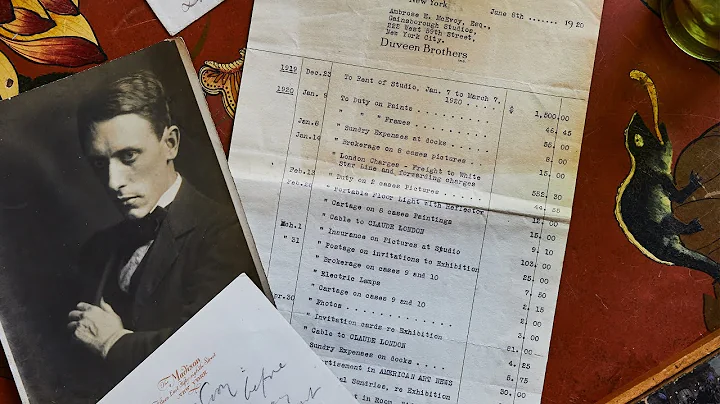 New York
June 8th ....... 1920
Ambrose E. McEvoy, Esq.,
Gainsborough Studios,
222 West 59th Street,
New York City.
Duveen Brothers
Inc.
1919 Dec.23 To Rent of Studio, Jan. 7 to March 7, 1920 . . . . $ 1,500.00
1920 Jan. 9 To Duty on Paints . . . . . . . . . 46.45
" " " Frames . . . . . . . . .
Jan.8 " Sundry Expenses at docks . . . . .
Jan.14 " Brokerage on 8 cases pictures . . 8.00
" London Charges - Freight to White
Star Line and forwarding charges 552.30
Feb.13 " Duty on 2 cases Pictures . . . . . 44.
" Portable Floor Light with Reflector
" Cartage on 8 cases Paintings
" Cable to CLAUDE LONDON 9.10
Mch.1 " Insurance on Pictures at Studio 102.00
" 31 " Postage on invitations to Exhibition 25.00
" Brokerage on cases 9 and 10 7.50
" Electric Lamps 2.15
" Cartage on cases 9 and 10 2.00
pr.30 " Photos . . . . . . . . . . . . . 3.00
" Invitation cards re Exhibition 81.00
" Cable to CLAUDE LONDON 4.25
Sundry Expenses on docks . . . . 5.75
ertisement in AMERICAN ART NEWS 30.00
l Sundries, re Exhibition
t in Room,
The Madison
NEW YORK
before